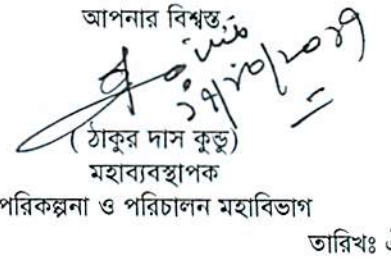 আপনার বিশ্বস্ত,
( ঠাকুর দাস কুন্ডু)
মহাব্যবস্থাপক
পরিকল্পনা ও পরিচালন মহাবিভাগ
তারিখঃ